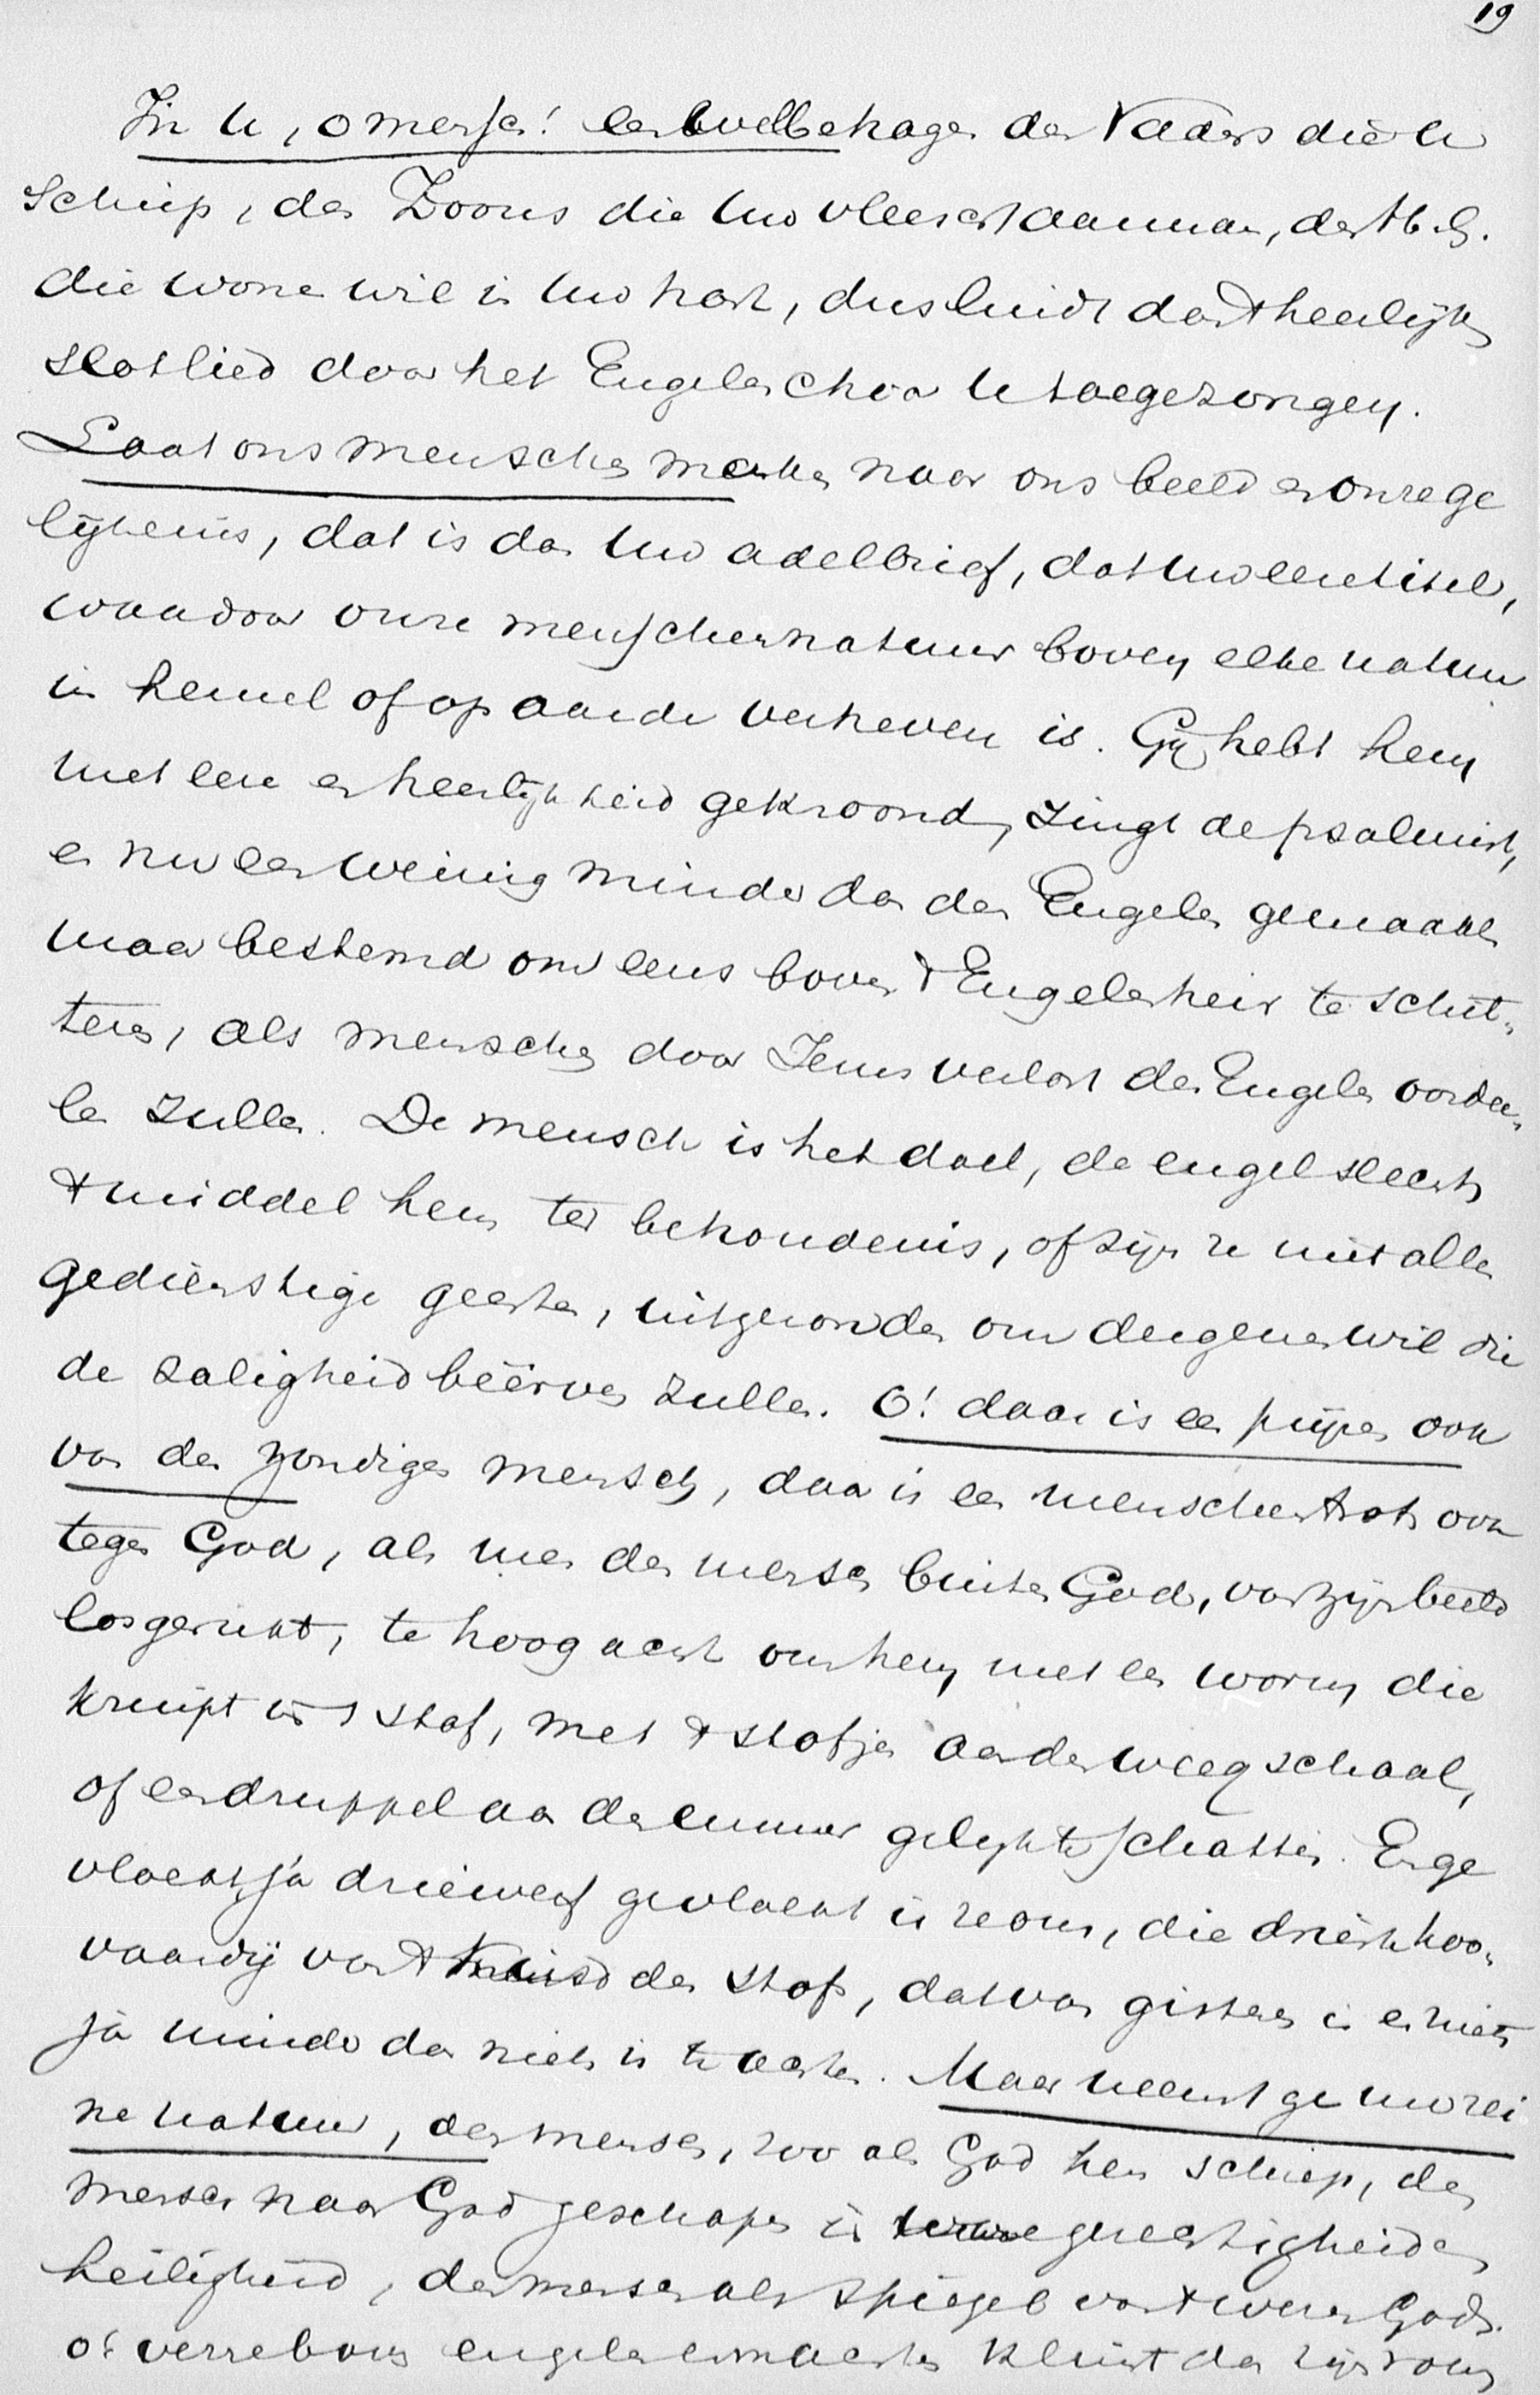 19
In U, o mensch! een welbehagen des Vaders die U
schiep, des Zoons die Uw vleesch aannam, des H. G.
die wonen wil in Uw hart, dus luidt dan 't heerlijk
slotlied door het Engelenchoor U toegezongen.
Laat ons menschen maken naar ons beeld en onze ge
lijkenis, dat is dan Uw adelbrief, dat Uw eeretitel,
waardoor onze menschennatuur boven elke natuur
in hemel of op aarde verheven is. Gij hebt hem
met eere en heerlijkheid gekroond, zingt de psalmist,
en nu een weinig minder dan de Engelen gemaakt,
maar bestemd om eens boven 't Engelenheir te schit-
teren, als menschen door Jezus verlost de Engelen oordee-
len zullen. De mensch is het doel, de engel slechts
't middel hem ter behoudenis, of zijn ze niet allen
gedienstige geesten, uitgezonden om dergener wil die
de zaligheid beërven zullen. O! daar is een prijzen ook
van den zondigen mensch, daar is een menschentrots ook
tegen God, als men den mensch buiten God, van zijn beeld
losgerukt, te hoog acht om hem met een worm die
kruipt in 't stof, met 't stofje aan de weegschaal,
of een druppel aan den emmer gelijk te schatten. En ge
vloekt, ja driewerf gevloekt is ze ons, die drieste hoo-
vaardij van 't kind des stofs, dat van gisteren is en niets
ja minder dan niets is te achten. Maar neemt ge Uw rei
ne natuur, den mensch, zoo als God hem schiep, den
mensch naar God geschapen in ware gerechtigheid en
heiligheid, den mensch als spiegel van 't wezen Gods.
o! verre boven engelenmachten klinkt dan zijn roem